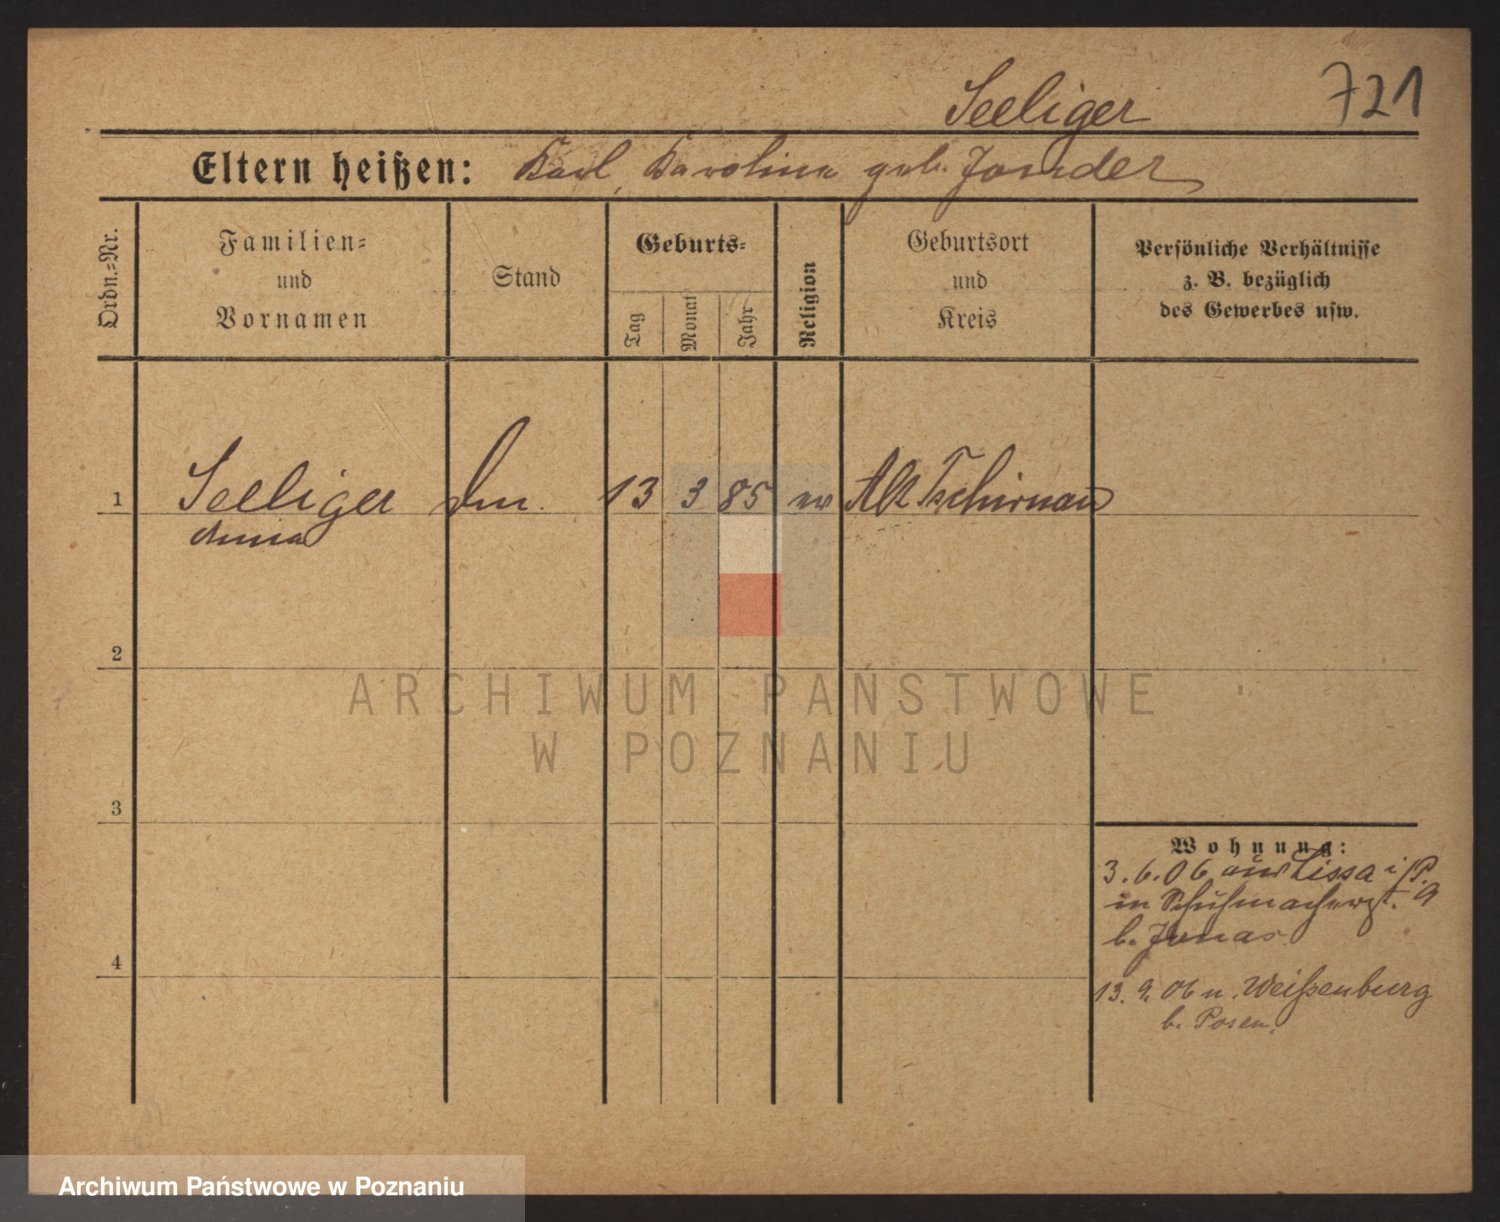 721
Seeliger
Eltern heißen: Karl, Karolina geb. Jander
Ordn.-Nr.
Familien-
und
Vornamen
Stand
Geburts-
Tag
Monat
Jahr
Religion
Geburtsort
und
Kreis
Persönliche Verhältnisse
z. B. bezüglich
des Gewerbes usw.
1 Seeliger 13 3 85 ev Alt Tschirnau
Anna
2
ARCHIWUM PAŃSTWOWE
W POZNANIU
3
Wohnung:
3.6.06 aus Lissa i/P.
in Schuhmacherst. 9
b. Jonas
4
13.9.06 n. Weißenburg
b. Posen.
Archiwum Państwowe w Poznaniu